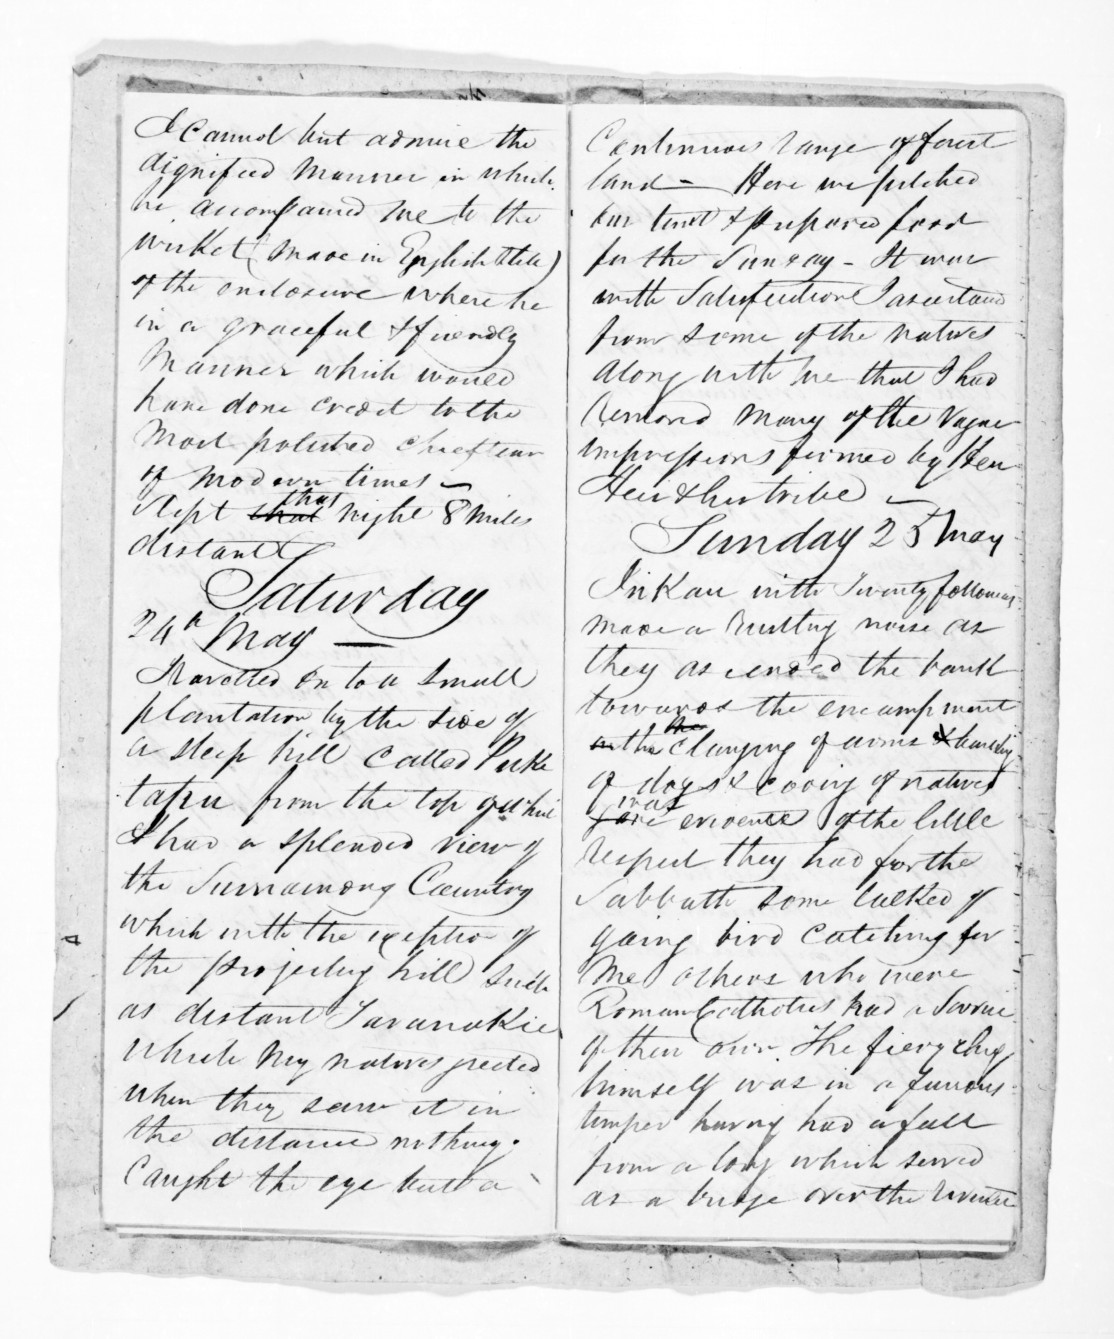 I cannot but admire the
dignified manner in which
he accompanied me to the
wicket (made in English style)
of the enclosure where he
in a graceful & friendly
manner which would
have done credit to the
most polished chieftain
of modern times –
Slept that that night 8 miles
distant
Saturday
24th May —
Travelled on to a small
plantation by the side of
a steep hill called Puke
tapu from the top of which
I had a splendid view of
the surrounding Country
which with the exception of
the projecting hill such
as distant Taranakie
which my natives greeted
when they saw it in
the distance nothing
caught the eye but a
Continuous range of forest
land – Here we pitched
our tent & prepared food
for the Sunday – It was
with satisfaction I ascertained
from some of the natives
along with me that I had
removed many of the vague
impressions formed by Heu
Heu & his tribe –
Sunday 25 May
Inkau with Twenty followers
made a bustling noise as
they ascended the bank
towards the encampment
the
in the clanging of arms & barking
of dogs & cooing of natives
was
gave evidence of the little
respect they had for the
Sabbath some talked of
going bird catching for
me others who were
Roman Catholics had a service
of their own. The fiery chief
himself was in a furious
temper having had a fall
from a log which served
as a bridge over the